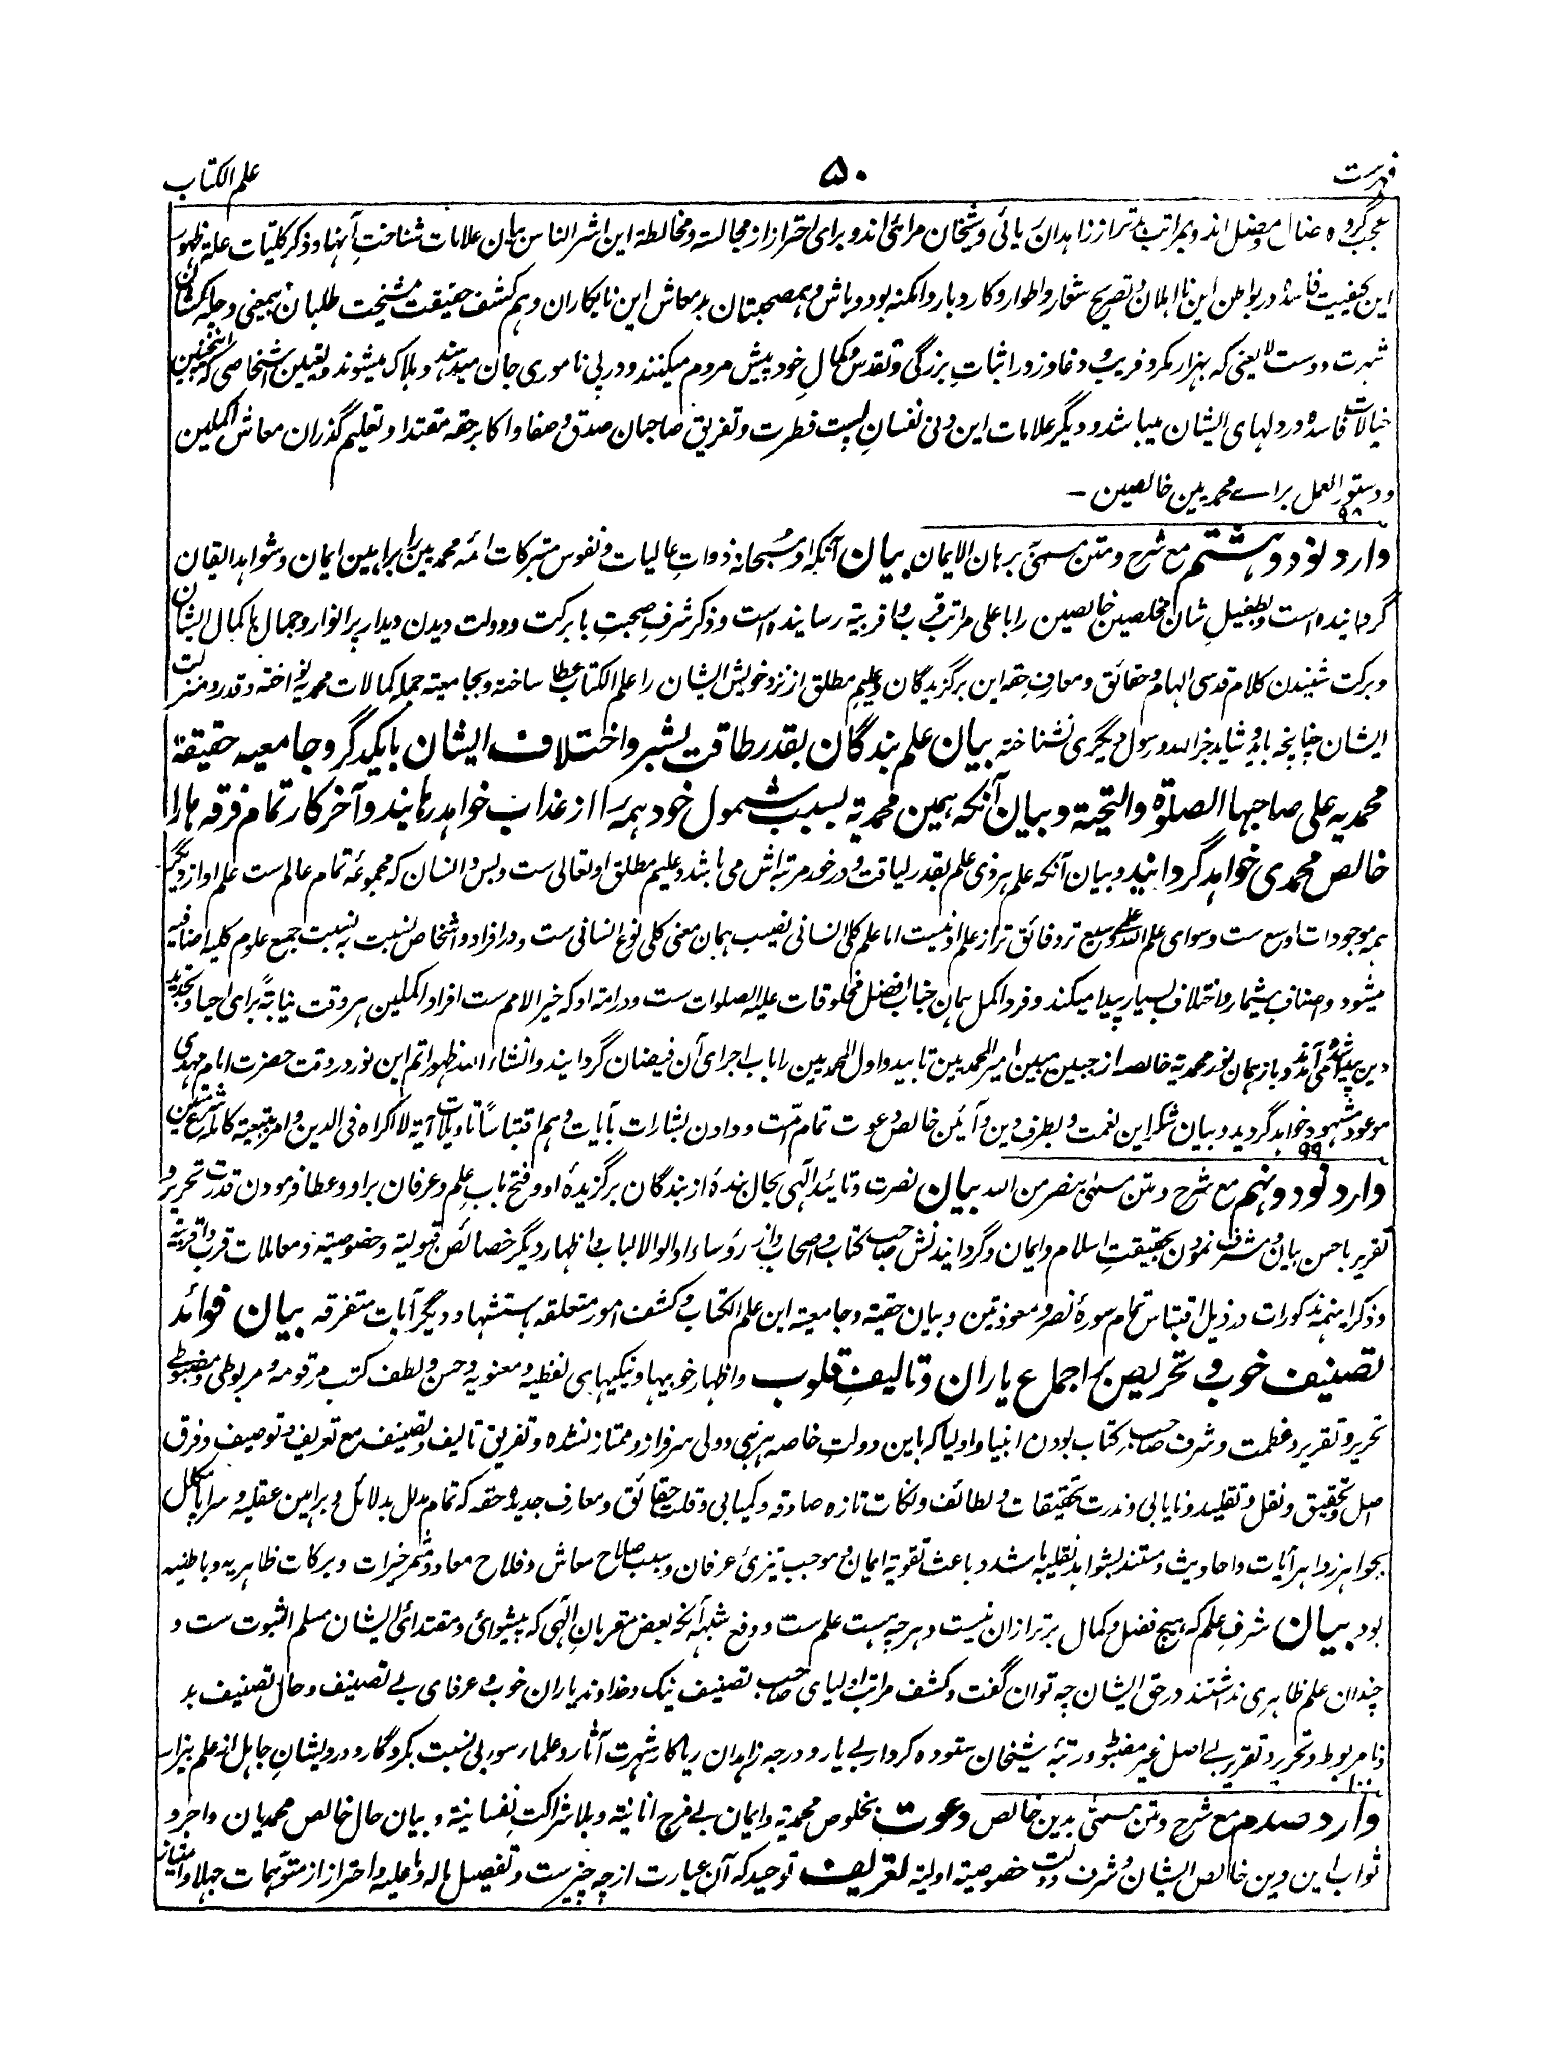 فهرست
۵۰
علم الکتاب
عجب گروه ضال و مضل اند و بمراتب بدتر از زاهدان ریائی و شیخان مرائی اند و برای احتراز از مجالسة و مخالطة این اشر الناس بیان علامات شناخت آنها و ذکر کلیات علة ظهور
این کیفیت فاسده در بواطن این نا اهلان و تصریح شعار و اطوار و کار و بار و امکنه بود و باش و هم صحبتان بد معاش این نابکاران و هم کشف حقیقت مشیخت طلبان بیمعنی و جاه کشان
شهرت دوست لا یعنی که بهزار مکر و فریب و دغا و زور اثبات بزرگی و تقدس و کمال خود پیش مردم میکنند و در پی ناموری جان میدهند و هلاک میشوند و تعیین اشخاصی که اینچنین
خیالات فاسده در دلهای ایشان میباشد و دیگر علامات این دنی نفسان پست فطرت و تفریق صاحبان صدق و صفا و اکابر حقه مقتدا و تعلیم گذران معاش اکملین
و دستور العمل برای محمدیین خالصین –
۹۸
وارد نود و هشتم مع شرح و متن مسمی برهان الایمان بیان آنکه او سبحانه ذوات عالیات و نفوس متبرکات ائمه محمدیین را براهین ایمان و شواهد ایقان
گردانیده است و بطفیل شان مخلصین خالصین را باعلی مراتب قرب و اقربیة رسانیده است و ذکر شرف صحبت با برکت و دولت دیدن دیدار پر انوار و جمال با کمال ایشان
و برکت شنیدن کلام قدسی الهام و حقائق و معارف حقه این برگزیدگان و علیم مطلق از نزد خویش ایشان را علم الکتاب عطا ساخته و بجامعیته جمله کمالات محمدیه نواخته و قدر و منزلت
ایشان چنانچه باید و شاید جز الله و رسول دیگری نشناخته بیان علم بندگان بقدر طاقت بشر و اختلاف ایشان با یکدیگر و جامعیه حقیقة
محمدیه علی صاحبها الصلوة والتحیة و بیان آنکه همین محمدیة بسبب شمول خود همه را از عذاب خواهد رهانید و آخر کار تمام فرقه ها را
خالص محمدی خواهد گردانید و بیان آنکه علم هر ذی علم بقدر لیاقت و در خور مرتبه اش می باشد و علیم مطلق او تعالی ست و بس و انسان که مجموعه تمام عالم ست علم او از دیگر
همه موجودات اوسع ست و سوای علم الله علمی وسیع تر و فائق تر از علم او نیست اما علم کلی انسانی نصیب همان معنی کلی نوع انسانی ست و در افراد و اشخاص نسبت به نسبت جمیع علوم کلیه اضافیه
میشود و اصناف بیشمار و اختلاف بسیار پیدا میکند و فرد اکمل همان جناب افضل مخلوقات علیه الصلوات ست و در امة او که خیر الامم ست افراد اکملین هر وقت نیابةً برای احیا و تجدید
دین پیدا شده می آیند و باز همان نور محمدیة خالصه از جبین مبین امیر المحمدیین تابید و اول المحمدیین را باب اجرای آن فیضان گردانیدند و انشاء الله ظهور اتم این نور در وقت حضرت امام مهدی
موعود مشهود خواهد گردید و بیان شکر این نعمت و بطرف دین و آئین خالص دعوت تمام امت و دادن بشارات بآیات و هم اقتباساً تاویلات آیة لا اکراه فی الدین و امر بتبعیة کامله شرع متین
۹۹
وارد نود و نهم مع شرح و متن مسمی بنصر من الله بیان نصرت و تائید الٓهی بحال بنده از بندگان برگزیده او و فتح باب علم و عرفان بر او و عطا فرمودن قدرت تحریر و
تقریر باحسن بیان و مشرف نمودن بحقیقت اسلام و ایمان و گردانیدنش صاحب کتاب و اصحاب و از رؤساء اولو الالباب و اظهار دیگر خصائص قبولیة و خصوصیة و معاملات قرب و اقربیة
و ذکر اینهمه مذکورات در ذیل اقتباس تمام سورۀ نصر و معوذتین و بیان حقیة و جامعیة این علم الکتاب و کشف امور متعلقه باستشهاد دیگر آیات متفرقه بیان فوائد
تصنیف خوب و تحریص بر اجماع یاران و تالیف قلوب و اظهار خوبیها و نیکیهای لفظیه و معنویه و حسن و لطف کتب مرقومه و مربوطی و مضبوطی
تحریر و تقریر و عظمت و شرف صاحب کتاب بودن انبیا و اولیا که باین دولت خاصه هر نبی و ولی سرفراز و ممتاز نشده و تفریق تالیف و تصنیف مع تعریف و توصیف و فرق
اصل و تحقیق و نقل و تقلید و نایابی و ندرت تحقیقات و لطائف و نکات تازه صادقه و کمیابی و قلت حقائق و معارف جدیده حقه که تمام مدلل بدلائل و براهین عقلیه و سراپا مکلل
بجواهر زواهر آیات و احادیث و مستند بشواهد نقلیه باشد و باعث تقویة ایمان و موجب تیزی عرفان و سبب صلاح معاش و فلاح معاد و مثمر خیرات و برکات ظاهریه و باطنیه
بود بیان شرف علم که هیچ فضل و کمال برتر از ان نیست و هرچه هست علم ست و دفع شبهه آنکه بعض مقربان الٓهی که پیشوائی و مقتدائی ایشان مسلم الثبوت ست و
چندان علم ظاهری نداشتند در حق ایشان چه توان گفت و کشف مراتب اولیای صاحب تصنیف نیک و خداوند یاران خوب و عرفای بی تصنیف و حال تصنیف بد
و نامربوط و تحریر و تقریر بی اصل غیر مضبوط و رتبه شیخان ستوده کردار بی یار و درجه زاهدان ریاکار شهرت آثار و علماء سوء بی نسبت بکردگار و درویشان جاهل از علم بیزار
۱۰۰
وارد صدم مع شرح و متن مسمی بدین خالص دعوت بخلوص محمدیة و ایمان بی مزج انانیة و بلا شراکت نفسانیة و بیان حال خالص محمدیان و اجر و
ثواب این دین خالص ایشان و شرف دولت خصوصیة اولیة تعریف توحید که آن عبارت از چه چیز ست و تفصیل ماله و ما علیه و احتراز از متوهمات جهلا و